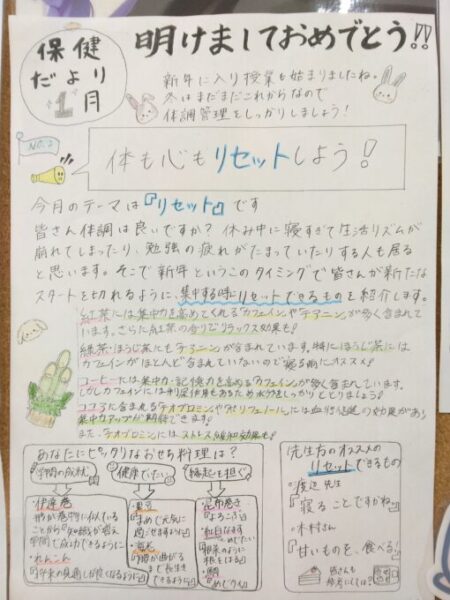 保健
だより
1月
明けましておめでとう!!
新年に入り授業も始まりましたね。
冬はまだまだこれからなので
体調管理をしっかりしましょう!
No.2
体も心もリセットしよう!
今月のテーマは『リセット』です
皆さん体調は良いですか?休み中に寝すぎて生活リズムが
崩れてしまったり、勉強の疲れがたまっていたりする人も居る
と思います。そこで新年というこのタイミングで皆さんが新たな
スタートを切れるように、集中する時にリセットできるものを紹介します。
紅茶には集中力を高めてくれる「カフェイン」や「テアニン」が多く含まれて
います。さらに紅茶の香りでリラックス効果も!
緑茶・ほうじ茶にも「テアニン」が含まれています。特にほうじ茶には
カフェインがほとんど含まれていないので寝る前にオススメ!
コーヒーには集中力・記憶力を高める「カフェイン」が多く含まれています。
しかしカフェインには利尿作用もあるため水分をしっかりととりましょう!
ココアに含まれる「テオブロミン」や「ポリフェノール」には血行促進の効果があり
集中力アップが期待できます!
また、「テオブロミン」にはストレス緩和効果も!
あなたにピッタリなおせち料理は?
学問の成就
健康でいたい
縁起を担ぐ
・伊達巻
形が巻物に似ている
ことから『知識が増え
学問で成功できるように』
・れんこん
『将来の見通しが良くなるように』
・黒豆
『まめで元気に
過ごせますように』
・海老
『腰が曲がる
まで長生き
できますように』
・昆布巻き
『よろこぶ』
・紅白なます
『めでたい』
『根菜のように
根をはる』
・鯛
『めでたい』
先生方のオススメの
リセットできるもの
・渡辺先生
『寝ることですかね』
・木村さん
『甘いものを、食べる』
皆さんも
参考にしてね!